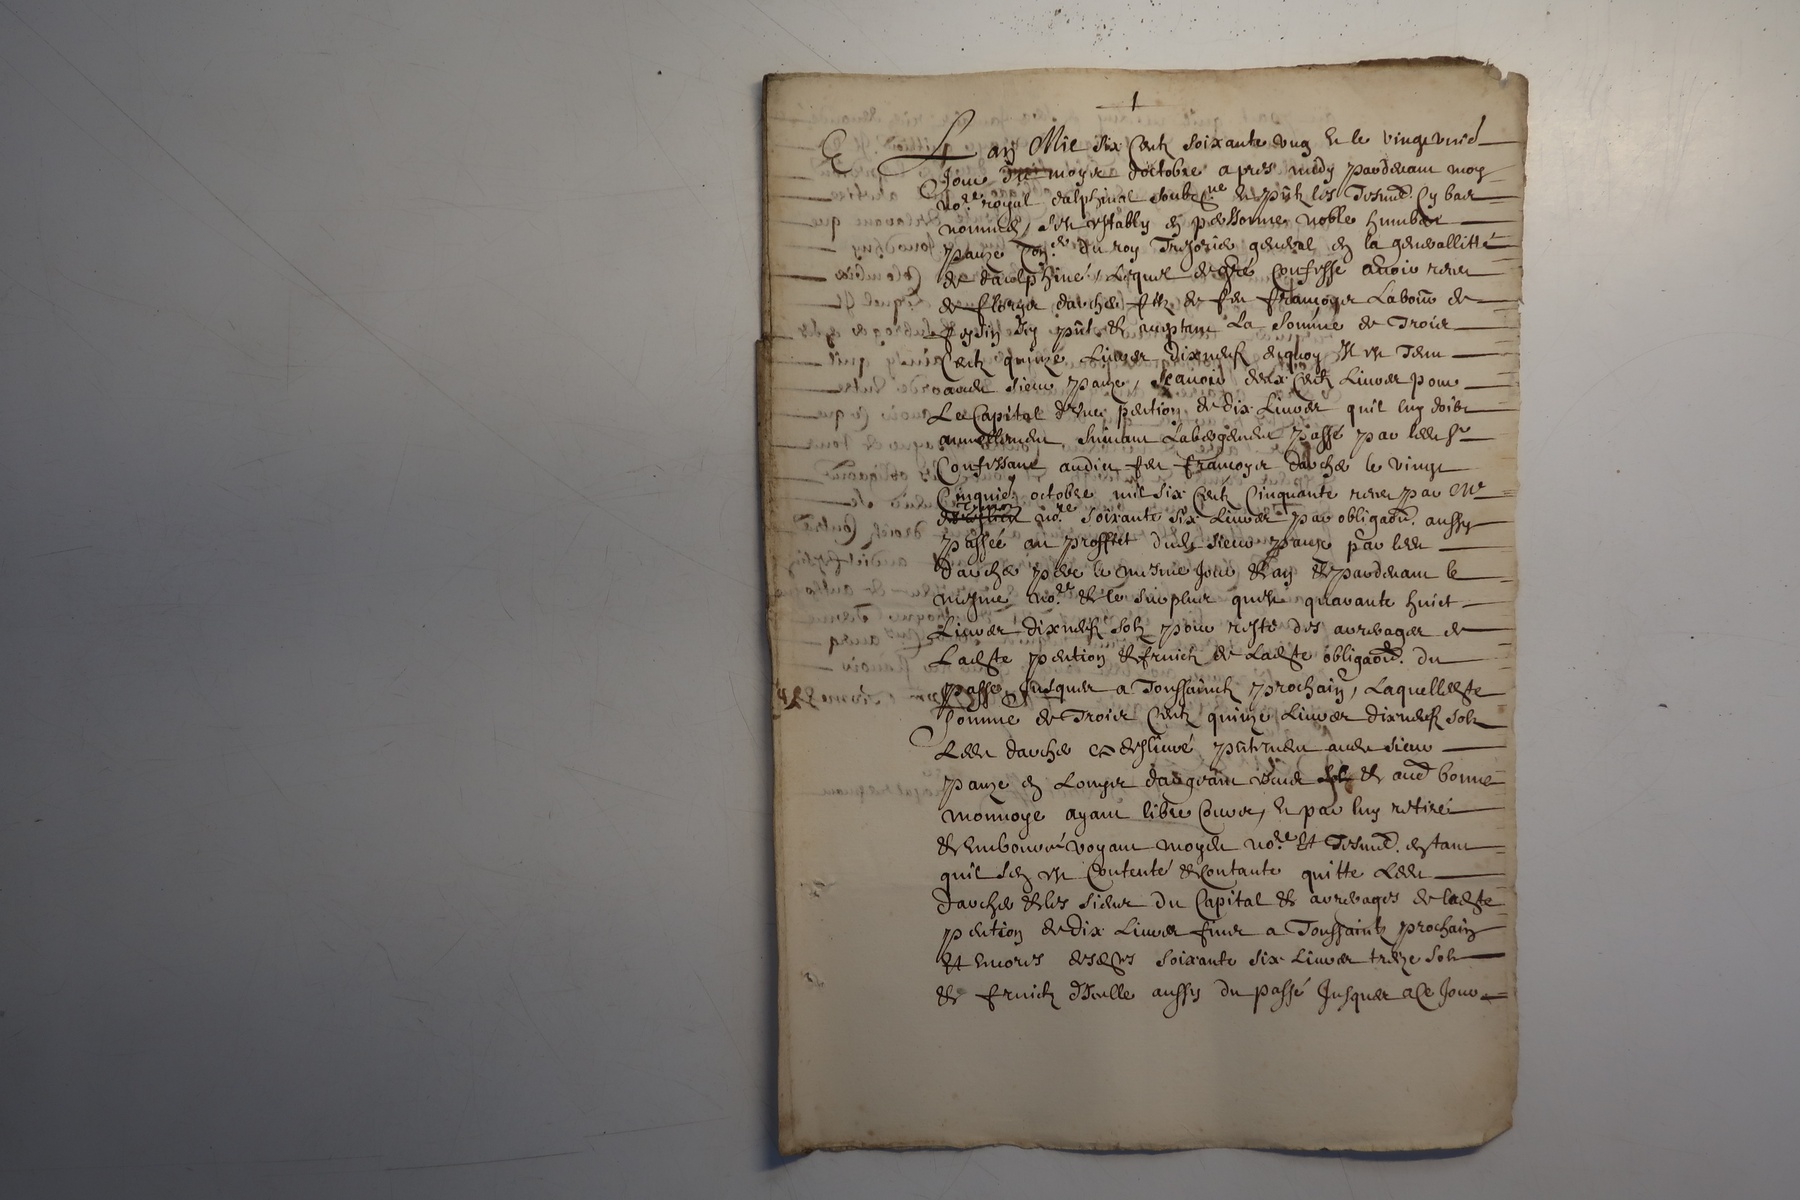 1
L'an Mil six centz soixante ung et le vingt unie
Jour du moys d'octobre apres midy pardevant moy
no.re royal dalphinal soubz.ne et pntz les tesmo. cy bas
nommes, s'est estably en personne noble humbert
panze con.er du roy Tresorier general en la generallitté
de daulphiné, Lequel de gré confesse avoir receu
de fleryer darches filz de feu françoyes Laboure de
pnt et acceptant La somme de Trois
Centz quinze Livres dixneuf enquoy Il est tenu
audit sieur panze, scavoir deux centz Livres pour
Le Capital d'une pention de dix Livres quil luy doibt
annuellement, suivant Labergement passé par ledit Sr
Confessant audict feu françoyes darches le vingt
Cinquie octobre mil six centz Cinquante receu par Me
no.re soixante six Livres par obligaon. aussy
passée au proffict dudit sieur panze par ledit
darches pere le mesme Jour et an et pardevant le
mesme no.re et le surplus quest quarante huict
Livres dixneuf solz pour reste des arreages de
Ladite pention et fruictz de Ladite obligaon. du
passé Jusques a Toussainctz prochain, Laquelle dite
somme de Trois Centz quinze Livres dixneuf solz
Ledit darches a deslivré, reellement audit sieur
panze en Louys d'argeant et aud bonne
monnoye ayant libre Cours, et par luy retiré
et emboursé voyant moydit no.re et Tesmo. estant
quil sen est Contenté et contante quitte Ledit
darches et les siens du Capital et arreages de ladite
pention de dix Livres finis a Toussainctz prochain
et encores desdites soixante six Livres treize solz
et fruictz d'Icelle aussy du passé Jusques a Ce Jour